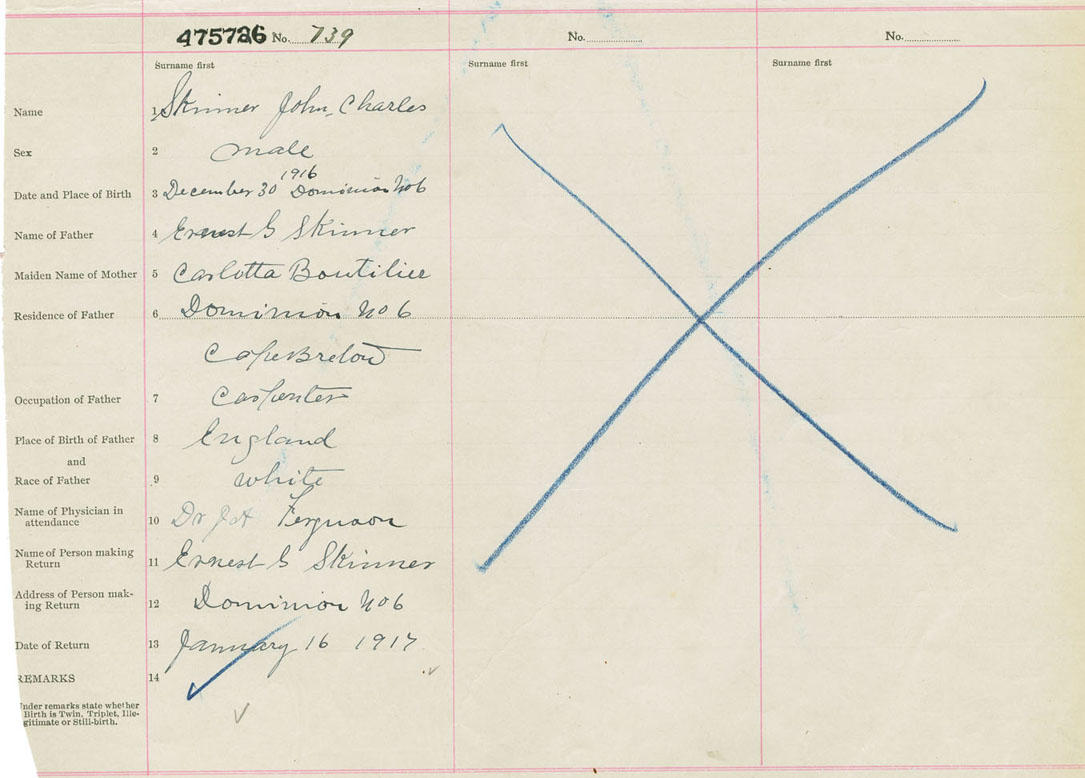 475726 No. 739 No. No.
Surname first Surname first Surname first
Name 1 Skinner John, Charles
Sex 2 male
1916
Date and Place of Birth 3 December 30 Dominion No 6
Name of Father 4 Ernest G Skinner
Maiden Name of Mother 5 Carlotta Boutilier
Residence of Father 6 Dominion No 6
Cape Breton
Occupation of Father 7 Carpenter
Place of Birth of Father 8 England
and
Race of Father 9 white
Name of Physician in
attendance 10 Dr J A Ferguson
Name of Person making
Return 11 Ernest G Skinner
Address of Person mak-
ing Return 12 Dominion No 6
Date of Return 13 January 16 1917
REMARKS 14
Under remarks state whether
Birth is Twin, Triplet, Ille-
gitimate or Still-birth.